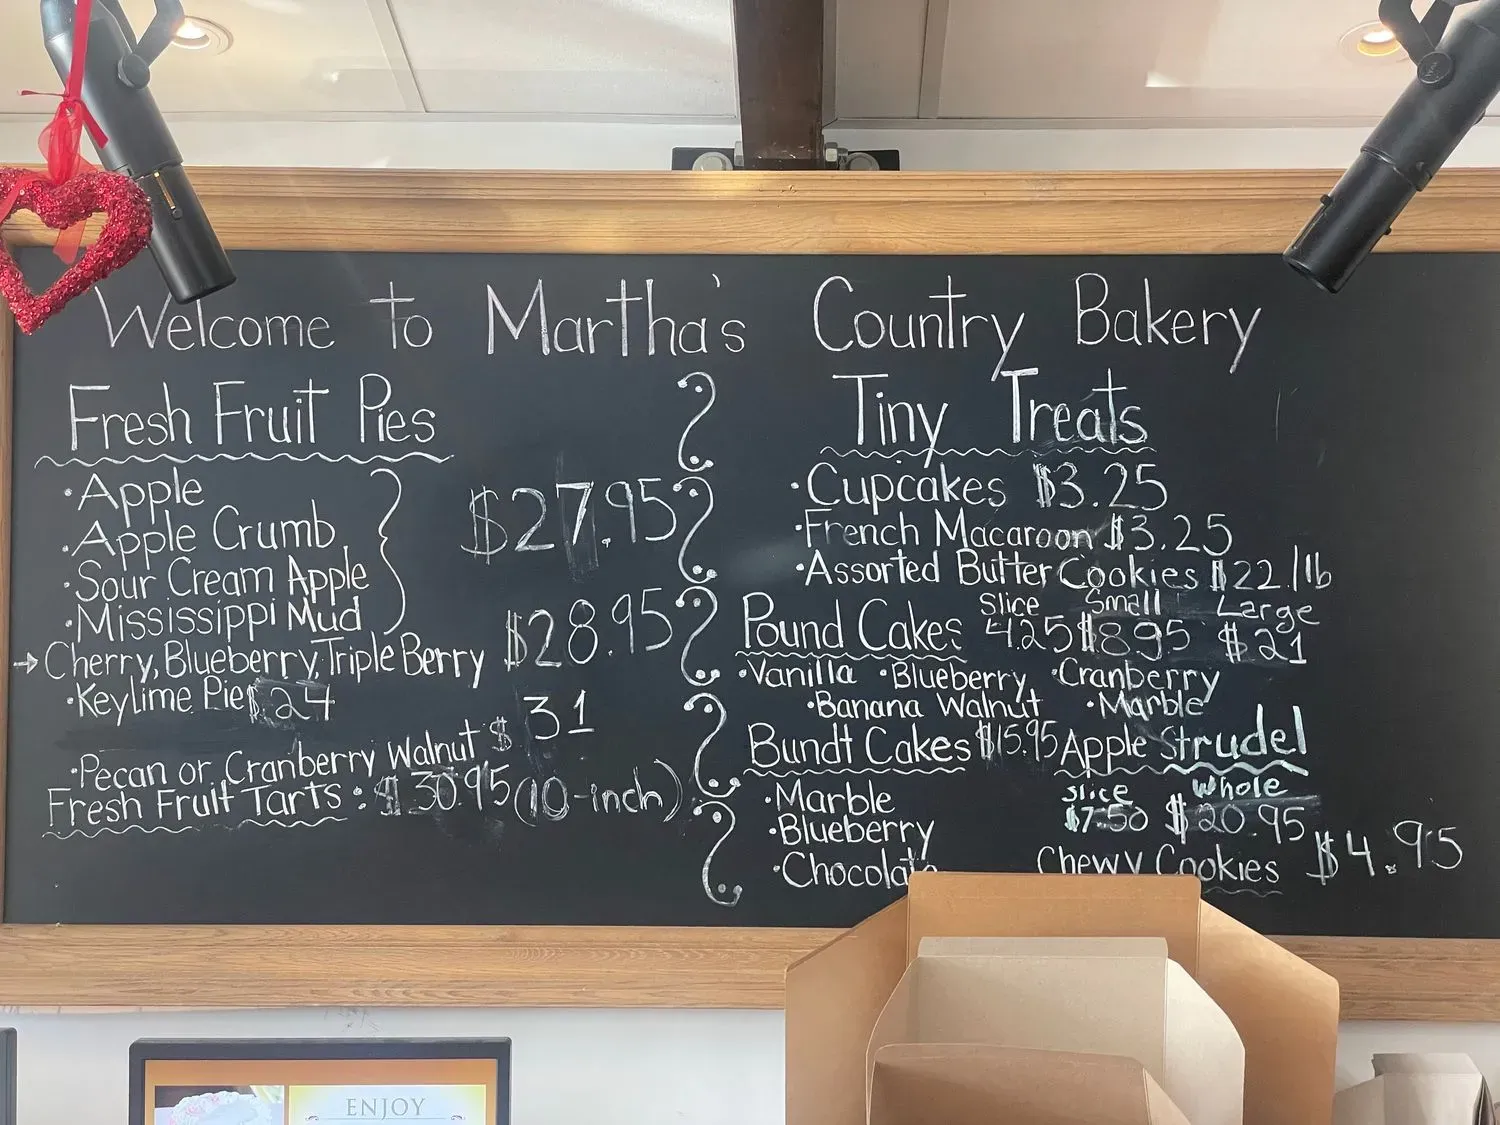 Welcome to Martha's Country Bakery
Fresh Fruit Pies
·Apple
·Apple Crumb
·Sour Cream Apple
·Mississippi Mud
$27.95
→Cherry, Blueberry, Triple Berry $28.95
·Keylime Pie $24
·Pecan or Cranberry Walnut $31
Fresh Fruit Tarts: $30.95 (10-inch)
Tiny Treats
·Cupcakes $3.25
·French Macaroon $3.25
·Assorted Butter Cookies $22./lb
Slice Small Large
Pound Cakes 4.25 $8.95 $21
·Vanilla ·Blueberry ·Cranberry
·Banana Walnut ·Marble
Bundt Cakes $15.95
·Marble
·Blueberry
·Chocolate
Apple Strudel
Slice Whole
$7.50 $20.95
Chewy Cookies $4.95
ENJOY